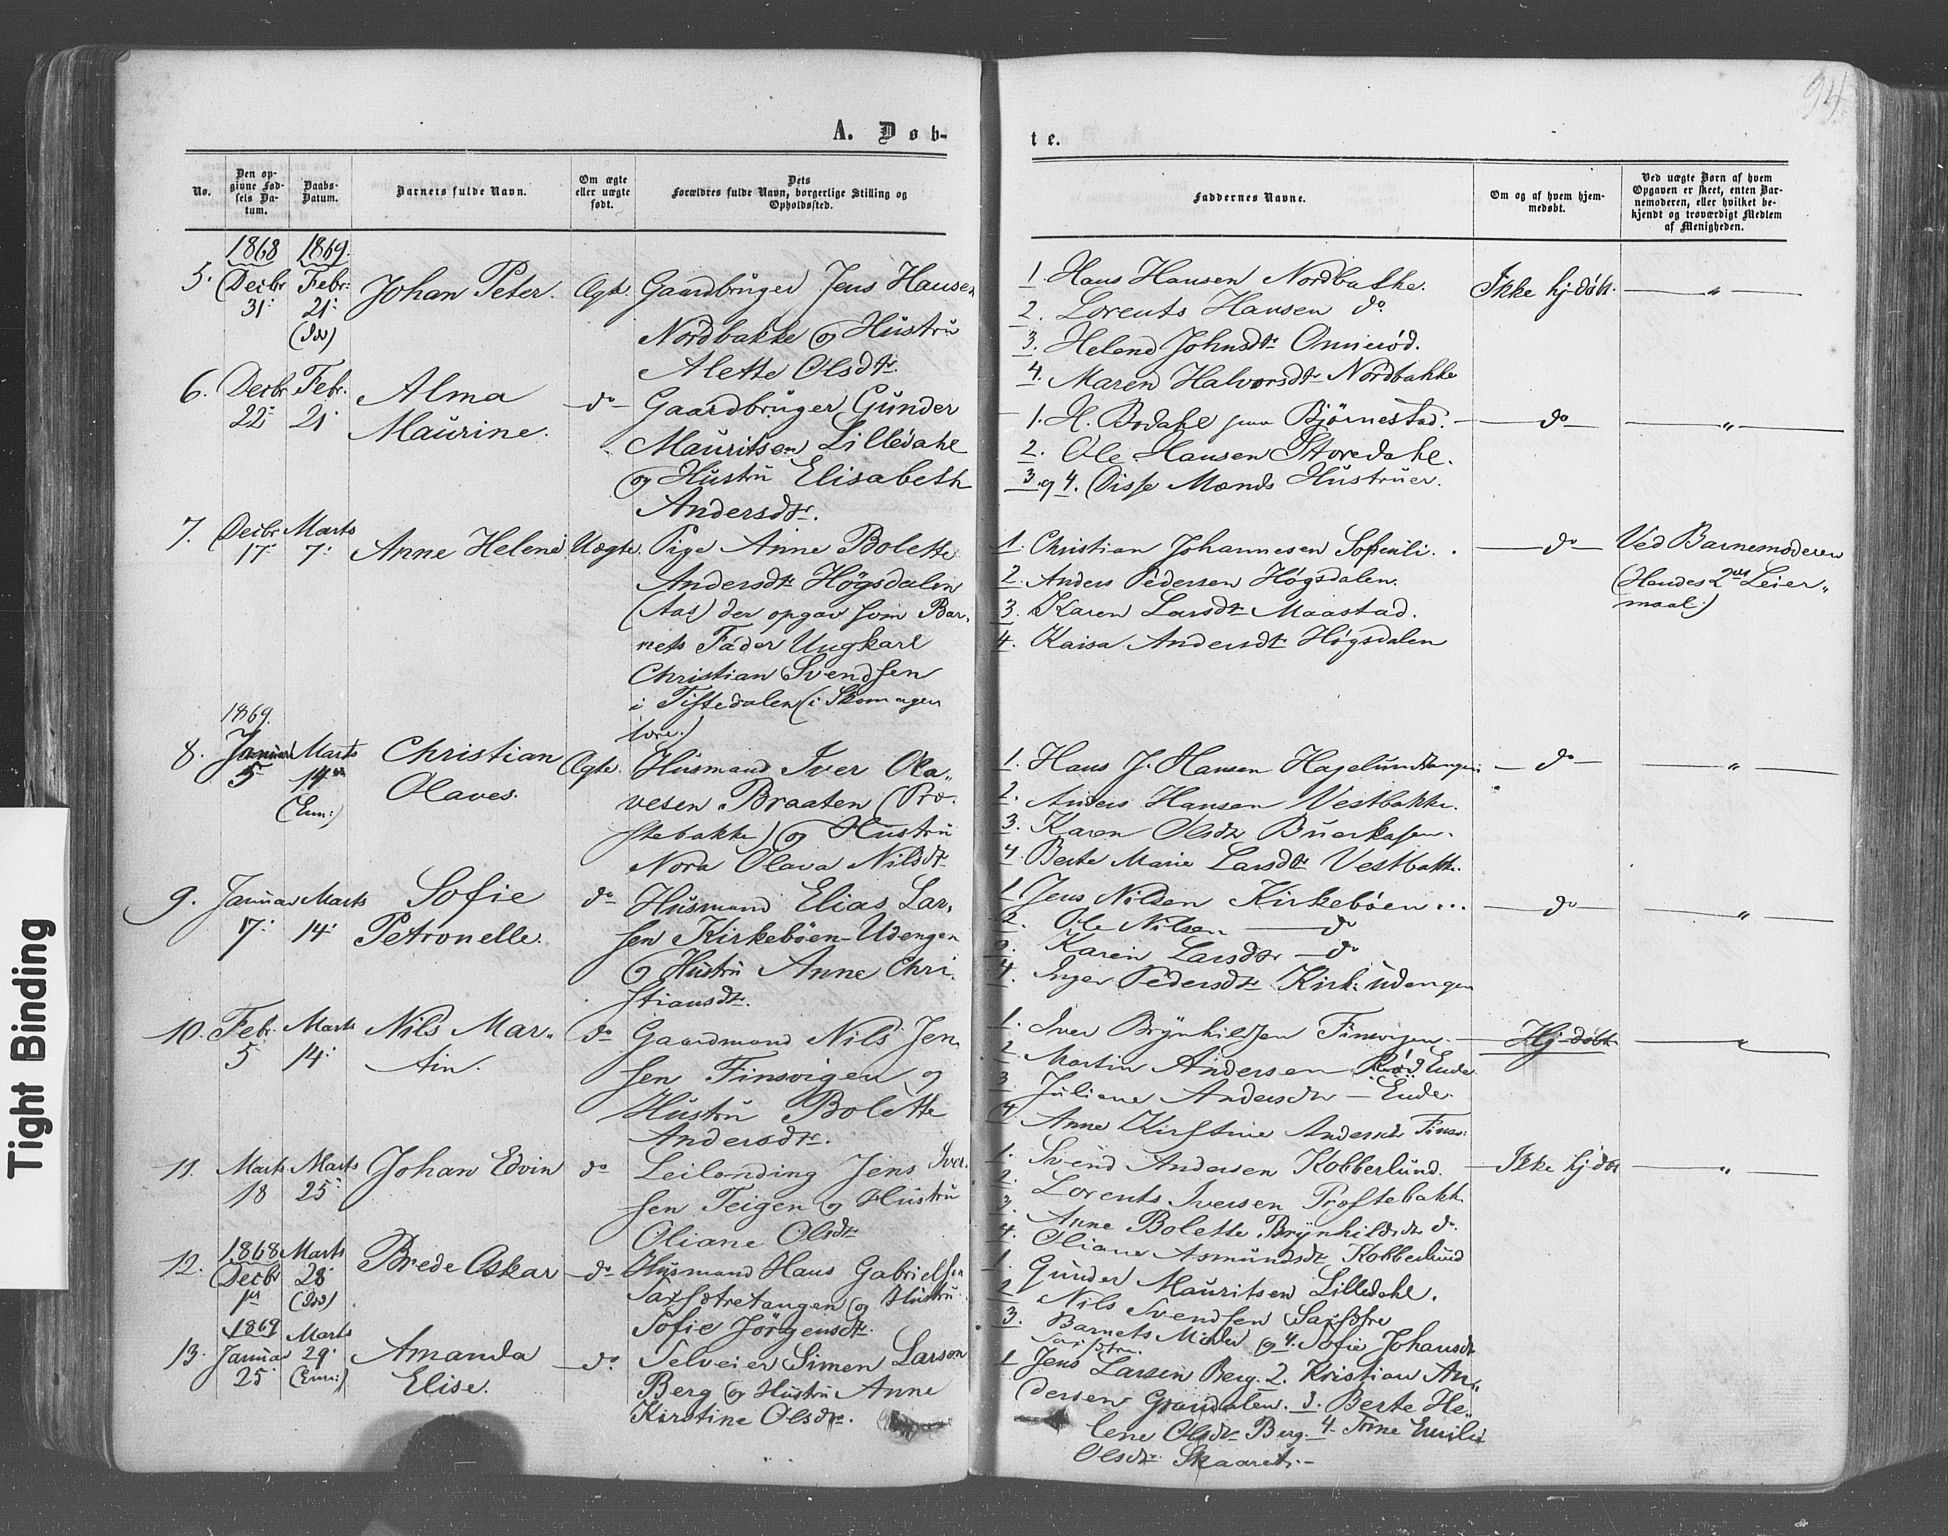 94
A. Døb-
te.
No.
Den op-
givne Fød-
sels Da-
tum.
Daabs-
Datum.
Barnets fulde Navn.
Om ægte
eller uægte
født.
Dets
Forældres fulde Navn, borgerlige Stilling og
Opholdssted.
Faddernes Navne.
Om og af hvem hjem-
medøbt.
Ved uægte Børn af hvem
Opgaven er skeet, enten Bar-
nemoderen, eller hvilket be-
kjendt og troværdigt Medlem
af Menigheden.
1868 1869.
5. Decbr 31: Febr: 21: (Ids) Johan Peter. Ægte. Gaardbruger Jens Hansen
Nordbakke og Hustru
Alette Olsdtr.
1. Hans Hansen Nordbakke. Ikke hj-døbt. — " —
2. Lorents Hansen do
3. Helene Johnsdtr
4. Maren Halvorsdtr Nordbakke
6. Decbr 22: Febr. 21: Alma
Maurine. do Gaardbruger Gunder
Mauritsen Lilledahl
og Hustru Elisabeth
Andersdtr.
1. H. Bjørnestad. — do — " —
2. Ole Hansen Storedahl.
3. og 4. Disse Mænds Hustruer.
7. Decbr 17: Marts 7: Anne Helene Uægte. Pige Anne Bolette
Andersdtr Høgsdalen
(Aas) der opgav som Bar-
nets Fader Ungkarl
Christian Svendsen
i Tistedalen (i Skomager
lære.)
1. Christian Johannesen . — do — Ved Barnemoderen
2. Anders Pedersen Høgsdalen. (Hendes 2det Leier-
3. Karen Larsdtr Maastad. maal.)
4. Kaisa Andersdtr Høgsdalen
1869.
8. Januar 5 Marts 14 (Enn:) Christian
Olaves. Ægte. Husmand Iver Ola-
vesen Braaten (Pro-
stebakke) og Hustru
Nora Olava Nilsdtr
1. Hans J. Hansen — do — " —
2. Anders Hansen Vestbakke.
3. Karen Olsdtr
4. Berte Marie Larsdtr Vestbakk.
9. Januar 17: Marts 14: Sofie
Petronelle. do Husmand Elias Lar-
sen Kirkebøen-Udengen
og Hustru Anne Chri-
stiansdtr.
1. Jens Nilsen Kirkebøen... — do — " —
2. Ole Nilsen — do
3. Karin Larsdtr — do
4. Inger Pedersdtr Kirk: udengen
10. Febr. 5 Marts 14: Nils Mar-
tin. do Gaardmand Nils Jen-
sen Finsvigen og
Hustru Bolette
Andersdtr.
1. Iver Brynhildsen Finsvigen. — Hj-døbt —
2. Martin Andersen Rød Ende
3. Juliane Andersdtr — Ende.
4. Anne Kirstine Andersdtr Fins:
11. Marts 18 Marts 25: Johan Edvin do Leilending Jens Iver-
sen Teigen og Hustru
Oliane Olsdtr
1. Svend Andersen Kobberlund. — Ikke hj-døbt — " —
2. Lorents Iversen Prostebakk
3. Anne Bolette Brynhildsdtr do.
4. Oliane Asmundsdtr Kobberlund
12. 1868 Decbr 1ste Marts 28: (Ids) Brede Oskar — do Husmand Hans Gabrielsen
Saxsøtretangen og Hustru
Sofie Jørgensdtr.
1. Gunder Mauritsen Lilledahl.
2. Nils Svendsen Saxsøtre
3. Barnets Moder og 4. Sofie Johansdtr
Saxsøtre.
1869
13. Januar 25 Marts 29: (Enn:) Amanda
Elise. — do Selveier Simen Larsen
Berg og Hustru Anne
Kirstine Olsdtr.
1. Jens Larsen Berg. 2. Kristian An-
dersen 3. Berte He-
lene Olsdtr Berg. 4. Emilie
Olsdtr Skaaret. -
Tight Binding